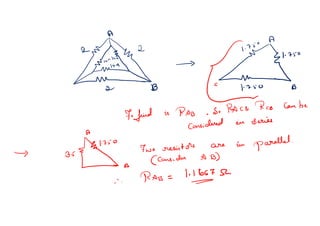 A
2
2
2
B
→
A
1.75Ω
1.75Ω
C
1.75Ω
B
To find is RAB, So RAC & RCB can be
considered in series
→
A
3.5
1.75Ω
B
Two resistors are in parallel
(Consider A B)
∴ RAB = 1.1667 Ω